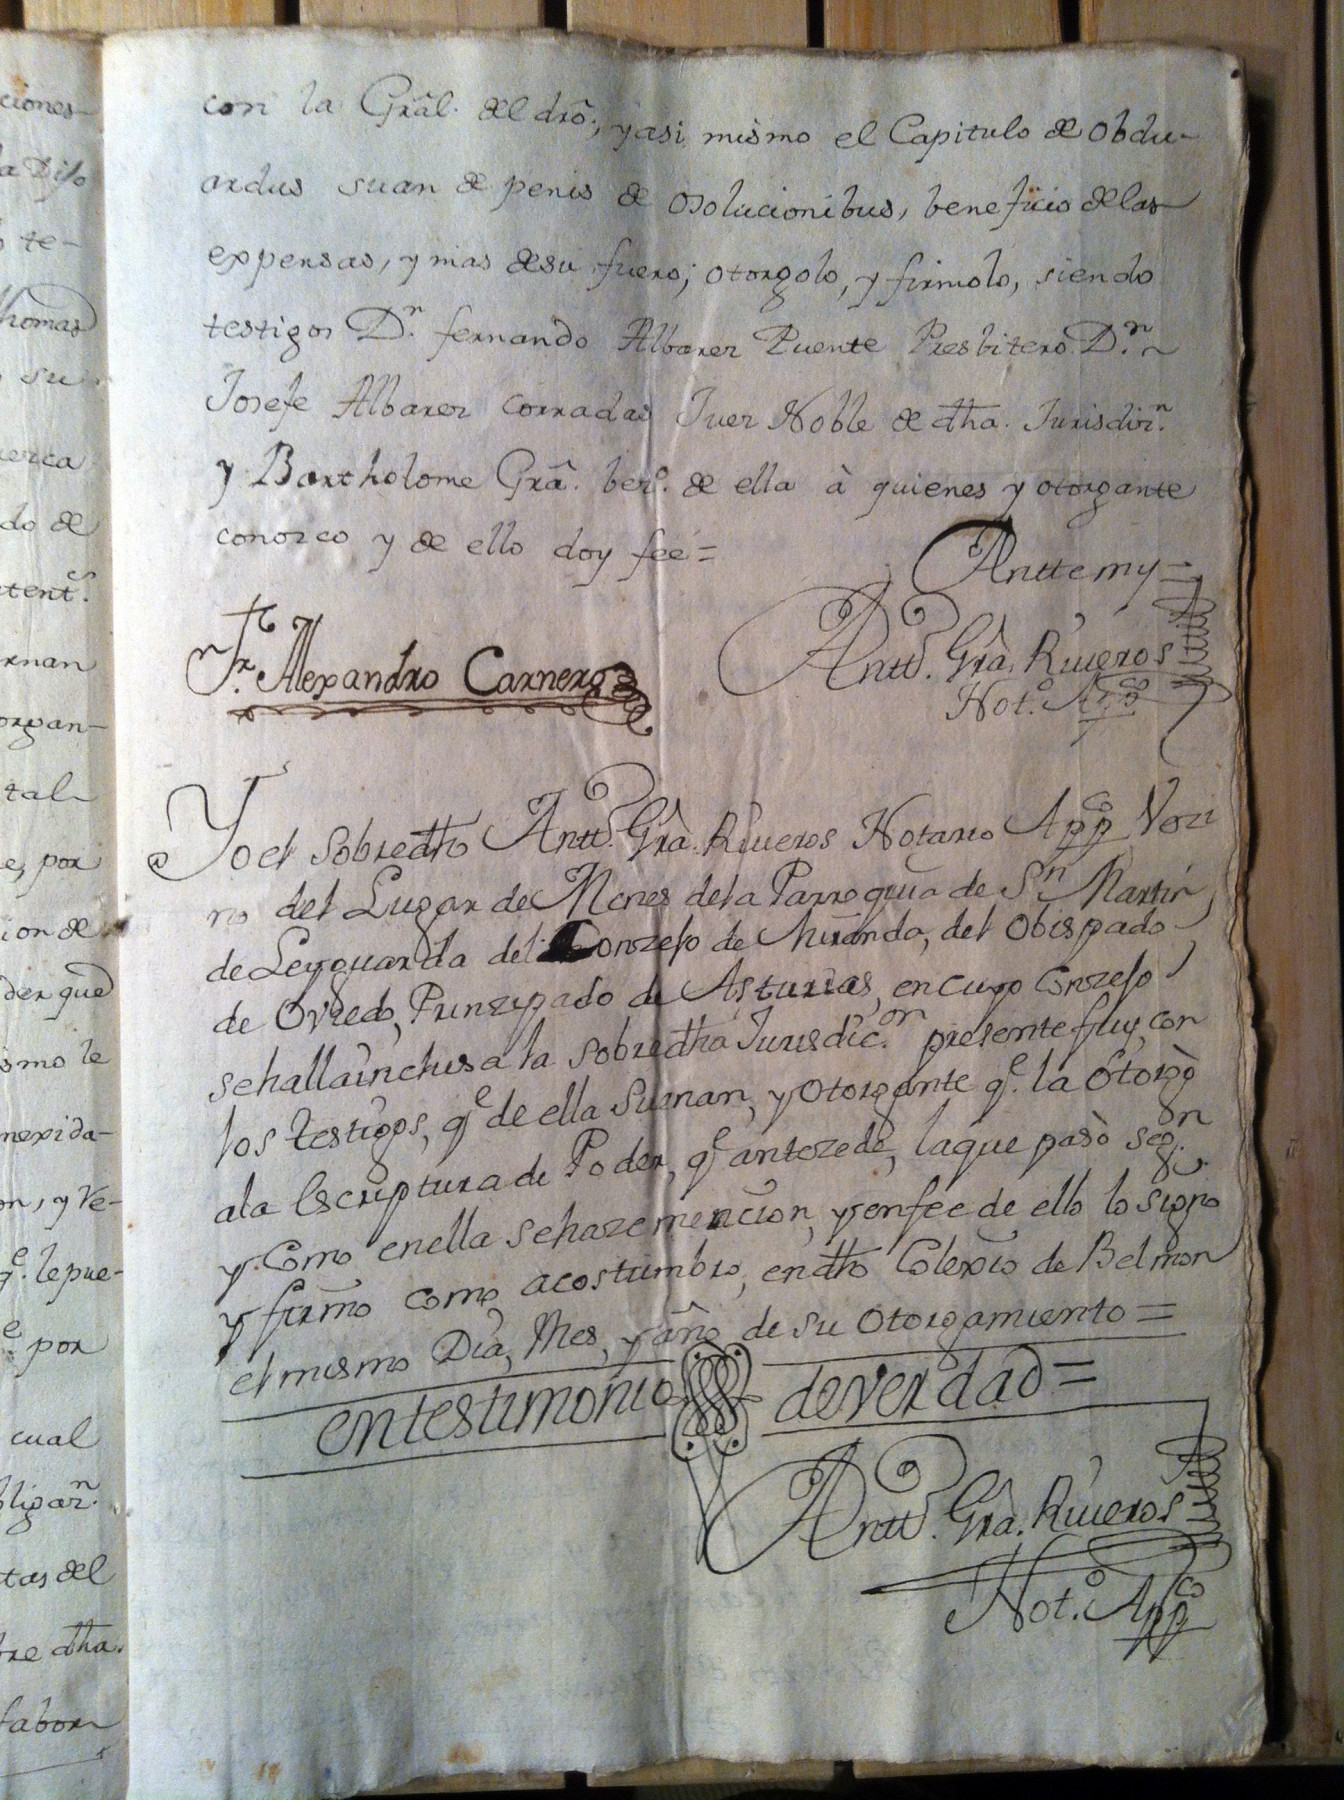 ciones
a Diſo
o te-
homas
su
uerca
do de
tent.ᵉ
rnan
organ-
tal
e, por
ion de
der que
smo le
nexida-
on, y Ve-
q.ᵉ le pue-
ᵉ por
cual
bligaz.ⁿ
tas del
bre dha.
fabor
con la Grãl. del drõ; y asi mismo el Capitulo de Obdu-
ardus suan de penis de osolucionibus, beneficio de las
expensas, y mas de su fuero; otorgolo, y firmolo, siendo
testigos D.ⁿ fernando Albarez Puente Presbitero D.ⁿ
Josefe Albarez corradas Juez Noble de dha. Jurisdiz.ⁿ
y Bartholome Grã. bez.º de ella à quienes y otorgante
conozco y de ello doy feè =
Anttemy =
Fr. Alexandro Carnero
Antt.º Grã. Riueros
Not.º App.ᶜᵒ
Yo el Sobredho Antt.º Grã. Riueros Notario App.ᶜᵒ Vezi
no del Lugar de Menes de la Parroquia de S.ⁿ Martin
de Leyguarda del Conzejo de Miranda, del Obispado
de Oviedo, Prinzipado de Asturias, en cuyo Conzejo
se halla inclusa la sobredha Jurisdic.ᵒⁿ presente fuy, con
los testigos, q.ᵉ de ella Suenan, y Otorgante q.ᵉ la Otorgò
a la Escriptura de Poder, q.ᵉ antezede, la que pasò seg.ⁿ
y Como en ella se haze mencion, y en fee de ello lo signo
y firmo como acostumbro, en dho Colexio de Belmon
el mismo Dia, Mes, y año de su Otorgamiento =
en testimonio de verdad =
Antt.º Grã. Riueros
Not.º App.ᶜᵒ